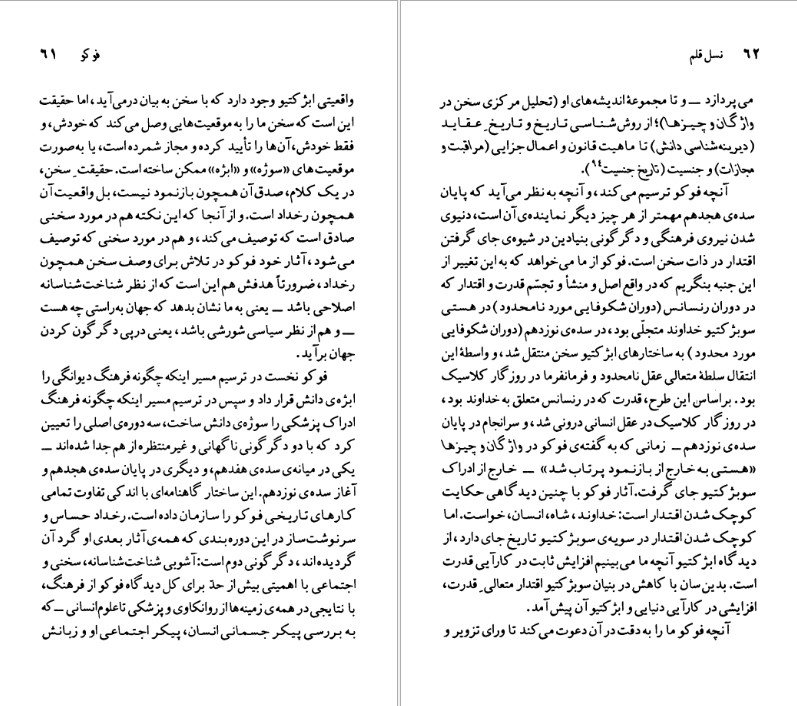 فوکو ۶۱
واقعیتی ابژکتیو وجود دارد که با سخن به بیان درمی‌آید، اما حقیقت
این است که سخن ما را به موقعیت‌هایی وصل می‌کند که خودش، و
فقط خودش، آن‌ها را تأیید کرده و مجاز شمرده است، یا به‌صورت
موقعیت‌های «سوژه» و «ابژه» ممکن ساخته است. حقیقتِ سخن،
در یک کلام، صدق آن همچون بازنمود نیست، بل واقعیت آن
همچون رخداد است. و از آنجا که این نکته هم در مورد سخنی
صادق است که توصیف می‌کند، و هم در مورد سخنی که توصیف
می‌شود، آثار خود فوکو در تلاش برای وصف سخن همچون
رخداد، ضرورتاً هدفش هم این است که از نظر شناخت‌شناسانه
اصلاحی باشد ــ یعنی به ما نشان بدهد که جهان به‌راستی چه هست
ــ و هم از نظر سیاسی شورشی باشد، یعنی درپی دگرگون کردن
جهان برآید.
فوکو نخست در ترسیم مسیر اینکه چگونه فرهنگ دیوانگی را
ابژه‌ی دانش قرار داد و سپس در ترسیم مسیر اینکه چگونه فرهنگ
ادراک پزشکی را سوژه‌ی دانش ساخت، سه دوره‌ی اصلی را تعیین
کرد که با دو دگرگونی ناگهانی و غیرمنتظره از هم جدا شده‌اند ــ
یکی در میانه‌ی سده‌ی هفدهم، و دیگری در پایان سده‌ی هجدهم و
آغاز سده‌ی نوزدهم. این ساختار گاهنامه‌ای با اندکی تفاوت تمامی
کارهای تاریخی فوکو را سازمان داده است. رخداد حساس و
سرنوشت‌ساز در این دوره‌بندی که همه‌ی آثار بعدی او گرد آن
گردیده‌اند، دگرگونی دوم است: آشوبی شناخت‌شناسانه، سخنی و
اجتماعی با اهمیتی بیش از حدّ برای کل دیدگاه فوکو از فرهنگ،
با نتایجی در همه‌ی زمینه‌ها از روانکاوی و پزشکی تا علوم انسانی ــ که
به بررسی پیکر جسمانی انسان، پیکر اجتماعی او و زبانش
۶۲ نسل قلم
می‌پردازد ــ و تا مجموعهٔ اندیشه‌های او (تحلیل مرکزی سخن در
واژگان و چیزها)؛ از روش‌شناسی تاریخ و تاریخِ عقاید
(دیرینه‌شناسی دانش) تا ماهیت قانون و اعمال جزایی (مراقبت و
مجازات) و جنسیت (تاریخ جنسیت۹۴).
آنچه فوکو ترسیم می‌کند، و آنچه به نظر می‌آید که پایان
سده‌ی هجدهم مهمتر از هر چیز دیگر نماینده‌ی آن است، دنیوی
شدن نیروی فرهنگی و دگرگونی بنیادین در شیوه‌ی جای گرفتن
اقتدار در ذات سخن است. فوکو از ما می‌خواهد که به این تغییر از
این جنبه بنگریم که در واقع اصل و منشأ و تجسّم قدرت و اقتدار که
در دوران رنسانس (دوران شکوفایی مورد نامحدود) در هستی
سوبژکتیو خداوند متجلّی بود، در سده‌ی نوزدهم (دوران شکوفایی
مورد محدود) به ساختارهای ابژکتیو سخن منتقل شد، و واسطهٔ این
انتقال سلطهٔ متعالی عقل نامحدود و فرمانفرما در روزگار کلاسیک
بود. براساس این طرح، قدرت که در رنسانس متعلق به خداوند بود،
در روزگار کلاسیک در عقل انسانی درونی شد، و سرانجام در پایان
سده‌ی نوزدهم ــ زمانی که به گفته‌ی فوکو در واژگان و چیزها
«هستی به خارج از بازنمود پرتاب شد» ــ خارج از ادراک
سوبژکتیو جای گرفت. آثار فوکو با چنین دیدگاهی حکایت
کوچک شدن اقتدار است: خداوند، شاه، انسان، خواست. اما
کوچک شدن اقتدار در سویه‌ی سوبژکتیو تاریخ جای دارد، از
دیدگاه ابژکتیو آنچه ما می‌بینیم افزایش ثابت در کارآیی قدرت
است. بدین‌سان با کاهش در بنیان سوبژکتیو اقتدار متعالیِ قدرت،
افزایشی در کارآیی دنیایی و ابژکتیو آن پیش آمد.
آنچه فوکو ما را به دقت در آن دعوت می‌کند تا ورای تزویر و